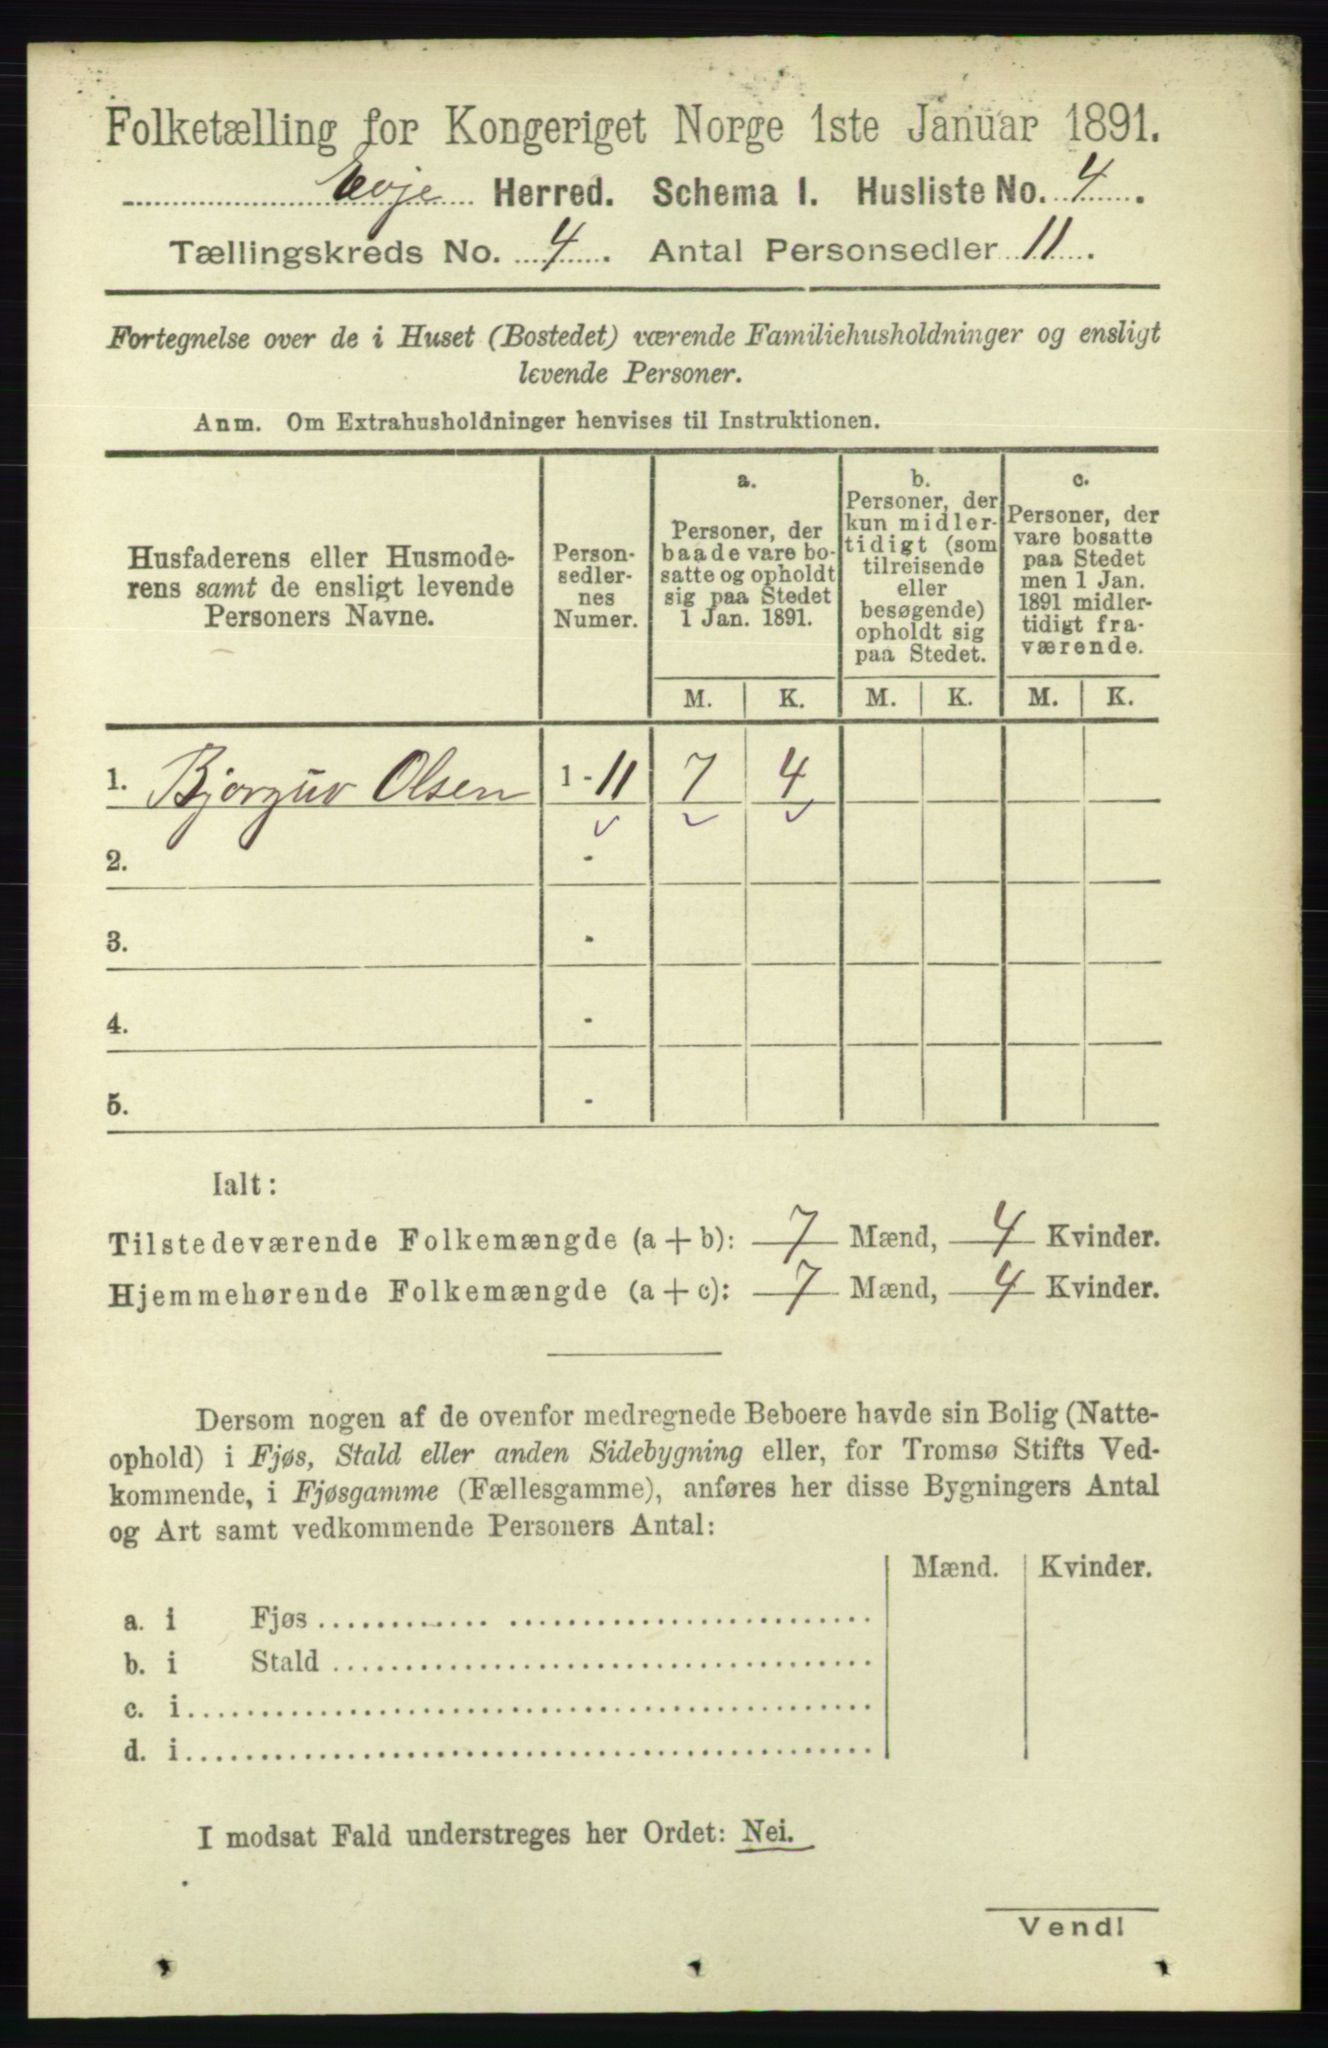 Folketælling for Kongeriget Norge 1ste Januar 1891.
Evje Herred. Schema I. Husliste No. 4.
Tællingskreds No. 4. Antal Personsedler 11.
Fortegnelse over de i Huset (Bostedet) værende Familiehusholdninger og ensligt
levende Personer.
Anm. Om Extrahusholdninger henvises til Instruktionen.
Husfaderens eller Husmode-
rens samt de ensligt levende
Personers Navne.
Person-
sedler-
nes
Numer.
a.
Personer, der
baade vare bo-
satte og opholdt
sig paa Stedet
1 Jan. 1891.
b.
Personer, der
kun midler-
tidigt (som
tilreisende
eller
besøgende)
opholdt sig
paa Stedet.
c.
Personer, der
vare bosatte
paa Stedet
men 1 Jan.
1891 midler-
tidigt fra-
værende.
M. K. M. K. M. K.
1. Olsen 1 - 11 7 4
2. -
3. -
4. -
5. -
Ialt:
Tilstedeværende Folkemængde (a + b): 7 Mænd, 4 Kvinder.
Hjemmehørende Folkemængde (a + c): 7 Mænd, 4 Kvinder.
Dersom nogen af de ovenfor medregnede Beboere havde sin Bolig (Natte-
ophold) i Fjøs, Stald eller anden Sidebygning eller, for Tromsø Stifts Ved-
kommende, i Fjøsgamme (Fællesgamme), anføres her disse Bygningers Antal
og Art samt vedkommende Personers Antal:
Mænd. Kvinder.
a. i Fjøs
b. i Stald
c. i
d. i
I modsat Fald understreges her Ordet: Nei.
Vend!